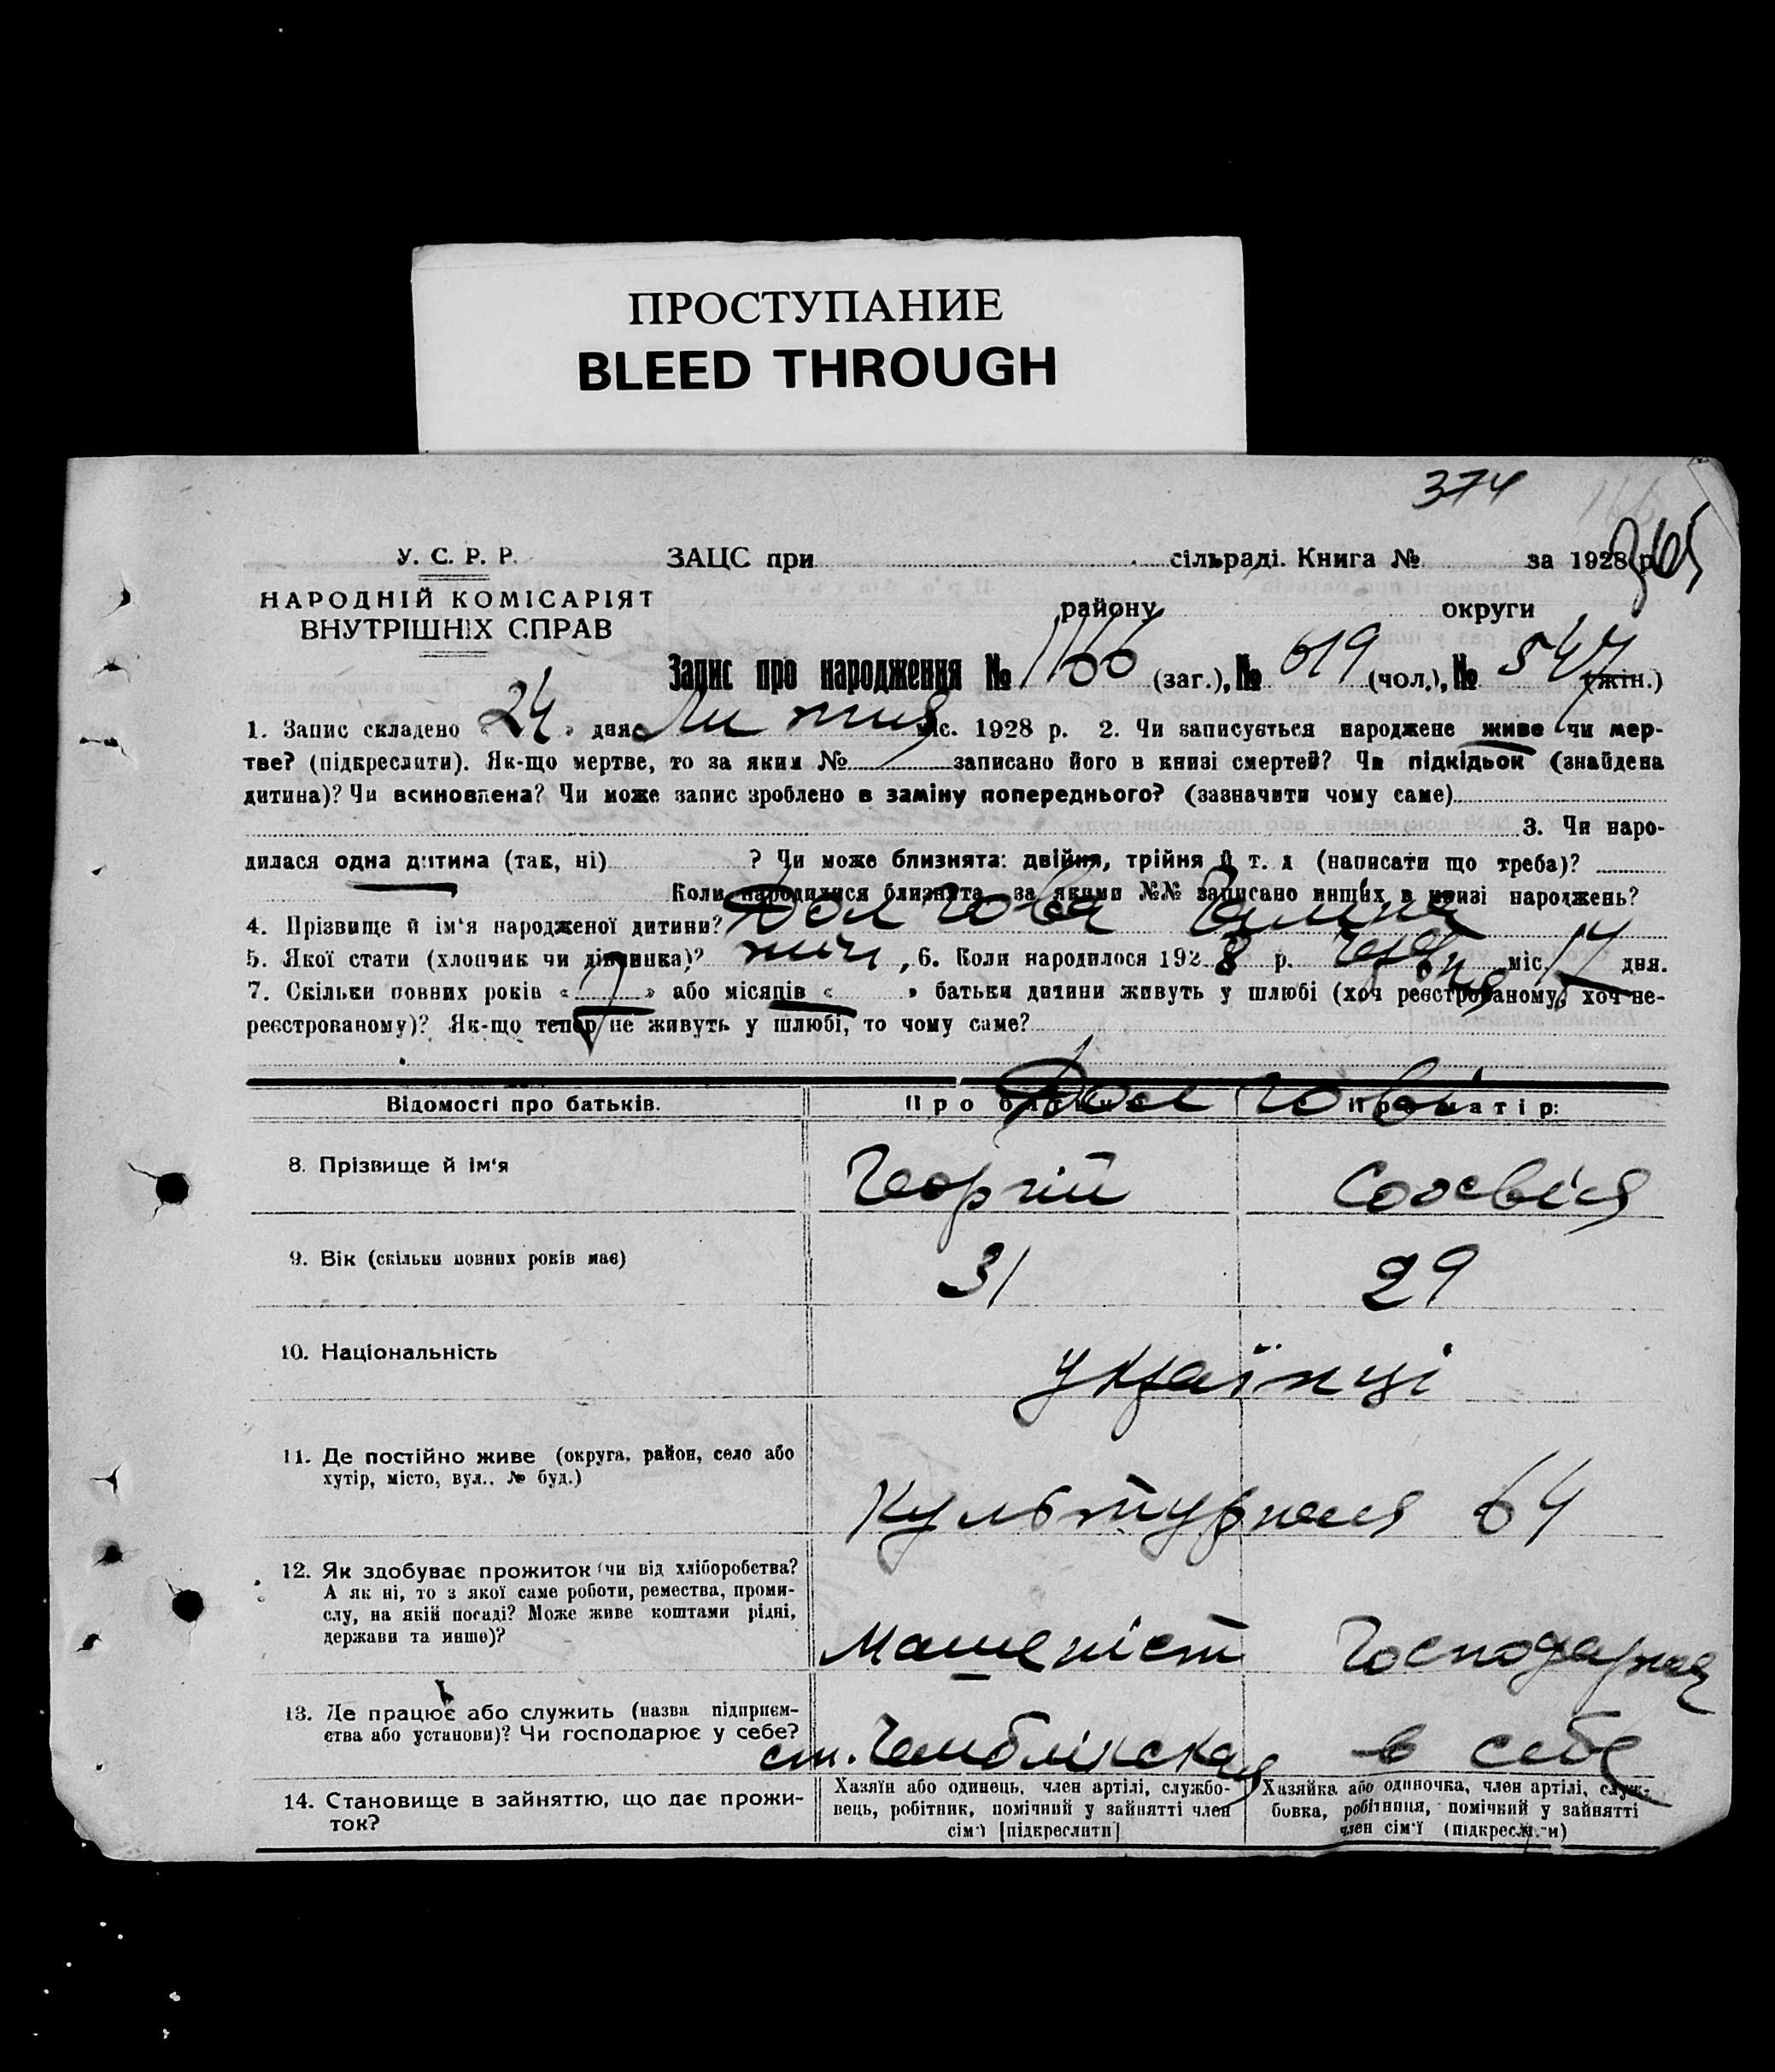 ПРОСТУПАНИЕ
BLEED THROUGH
374
У. С. Р. Р.
ЗАЦС при сільраді. Книга № за 1928 р
НАРОДНІЙ КОМІСАРІЯТ
ВНУТРІШНІХ СПРАВ
району округи
Запис про народження № 1166 (заг.), № 619 (чол.), № 547 (жін.)
1. Запис складено « 24 » дня Липня міс. 1928 р. 2. Чи записується народжене живе чи мер-
тве? (підкреслити). Як-що мертве, то за яким № записано його в книзі смертей? Чи підкідьок (знайдена
дитина)? Чи всиновлена? Чи може запис зроблено в заміну попереднього? (зазначити чому саме)
3. Чи наро-
дилася одна дитина (так, ні) ? Чи може близнята: двійня, трійня й т. д (написати що треба)?
Коли народилися близнята, за якими №№ записано инших в книзі народжень?
4. Прізвище й ім'я народженої дитини? Долгова
5. Якої стати (хлопчик чи дівчинка)? , 6. Коли народилося 192 8 р. Червня міс 14 дня.
7. Скільки повних років « 7 » або місяців « » батьки дитини живуть у шлюбі (хоч реєстрованому, хоч не-
реєстрованому)? Як-що тепер не живуть у шлюбі, то чому саме?
Відомості про батьків. Про батька: Про матір:
Долгови
8. Прізвище й ім'я Георгій
9. Вік (скільки повних років має) 31 29
10. Національність українці
11. Де постійно живе (округа, район, село або
хутір, місто, вул., № буд.)
Культурная 64
12. Як здобуває прожиток (чи від хліборобства?
А як ні, то з якої саме роботи, ремества, проми-
слу, на якій посаді? Може живе коштами рідні,
держави та инше)?
Машеніст Господарка
13. Де працює або служить (назва підприєм-
ства або установи)? Чи господарює у себе?
ст. в себе
14. Становище в зайняттю, що дає прожи-
ток?
Хазяїн або одинець, член артілі, службо-
вець, робітник, помічний у зайнятті член
сім'ї [підкреслити]
Хазяйка або одиночка, член артілі, служ-
бовка, робітниця, помічний у зайнятті
член сім'ї (підкреслити)